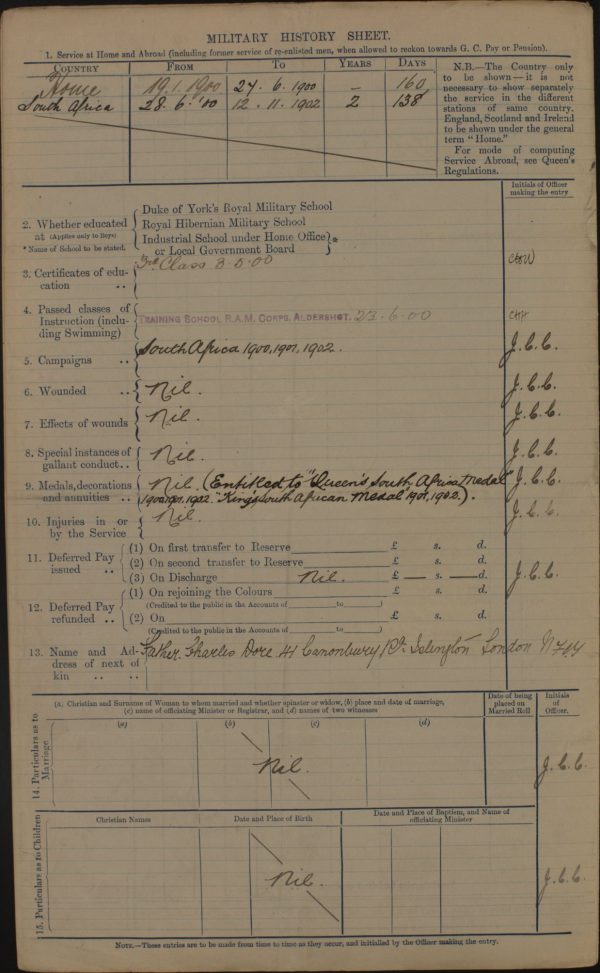 MILITARY HISTORY SHEET.
1. Service at Home and Abroad (including former service of re-enlisted men, when allowed to reckon towards G. C. Pay or Pension).
COUNTRY FROM TO YEARS DAYS
Home 19.1.1900 27.6.1900 — 160
South Africa 28.6.'00 12.11.1902 2 138
N.B.—The Country only
to be shown—it is not
necessary to show separately
the service in the different
stations of same country.
England, Scotland and Ireland
to be shown under the general
term "Home."
For mode of computing
Service Abroad, see Queen's
Regulations.
Initials of Officer
making the entry
2. Whether educated
at (Applies only to Boys)
* Name of School to be stated.
Duke of York's Royal Military School
Royal Hibernian Military School
Industrial School under Home Office
or Local Government Board *
3. Certificates of edu-
cation ..
3rd Class 3.5.00
4. Passed classes of
Instruction (inclu-
ding Swimming)
TRAINING SCHOOL R.A.M. CORPS, ALDERSHOT. 23.6.00
5. Campaigns .. South Africa 1900, 1901, 1902. J.C.C.
6. Wounded .. Nil. J.C.C.
7. Effects of wounds Nil. J.C.C.
8. Special instances of
gallant conduct.. Nil. J.C.C.
9. Medals, decorations
and annuities ..
Nil. (Entitled to "Queen's South Africa Medal" J.C.C.
1900, 1901, 1902. "King's South African Medal 1901, 1902.).
10. Injuries in or
by the Service Nil. J.C.C.
11. Deferred Pay
issued ..
(1) On first transfer to Reserve £ s. d.
(2) On second transfer to Reserve £ s. d.
(3) On Discharge Nil. £ — s. — d. J.C.C.
12. Deferred Pay
refunded ..
(1) On rejoining the Colours £ s. d.
(Credited to the public in the Accounts of to )
(2) On £ s. d.
(Credited to the public in the Accounts of to )
13. Name and Ad-
dress of next of
kin .. ..
Father. Charles Dore 41 Canonbury Islington London N
14. Particulars as to
Marriage
(a. Christian and Surname of Woman to whom married and whether spinster or widow, (b) place and date of marriage,
(c) name of officiating Minister or Registrar, and (d) names of two witnesses
Date of being
placed on
Married Roll
Initials
of
Officer.
(a) (b) (c) (d)
Nil. J.C.C.
15. Particulars as to Children
Christian Names Date and Place of Birth Date and Place of Baptism, and Name of
officiating Minister
Nil. J.C.C.
NOTE.—These entries are to be made from time to time as they occur, and initialled by the Officer making the entry.